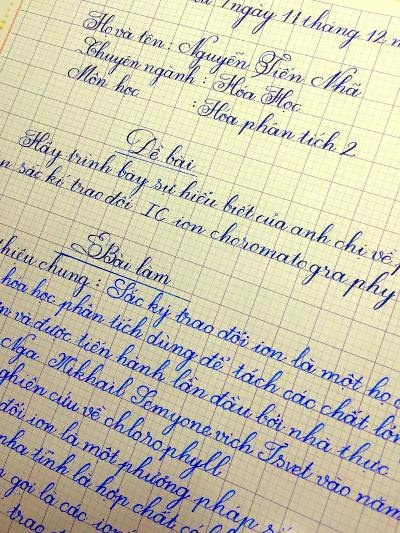 1 ngày 11 tháng 12
Họ và tên : Nguyễn Tiến Nhã
Chuyên ngành : Hóa Học
Môn học : Hóa phân tích 2
Đề bài
Hãy trình bày sự hiểu biết của anh chị về
sắc ký trao đổi IC ion choromatography
Bài làm
thiệu chung : Sắc ký trao đổi ion là một họ
hóa học phân tích dùng để tách các chất
và được tiến hành lần đầu bởi nhà thực
Nga Mikhail Semyonevich Tsvet vào năm
nghiên cứu về chlorophyll.
đổi ion là một phương pháp
pha tĩnh là hợp chất
gọi là các